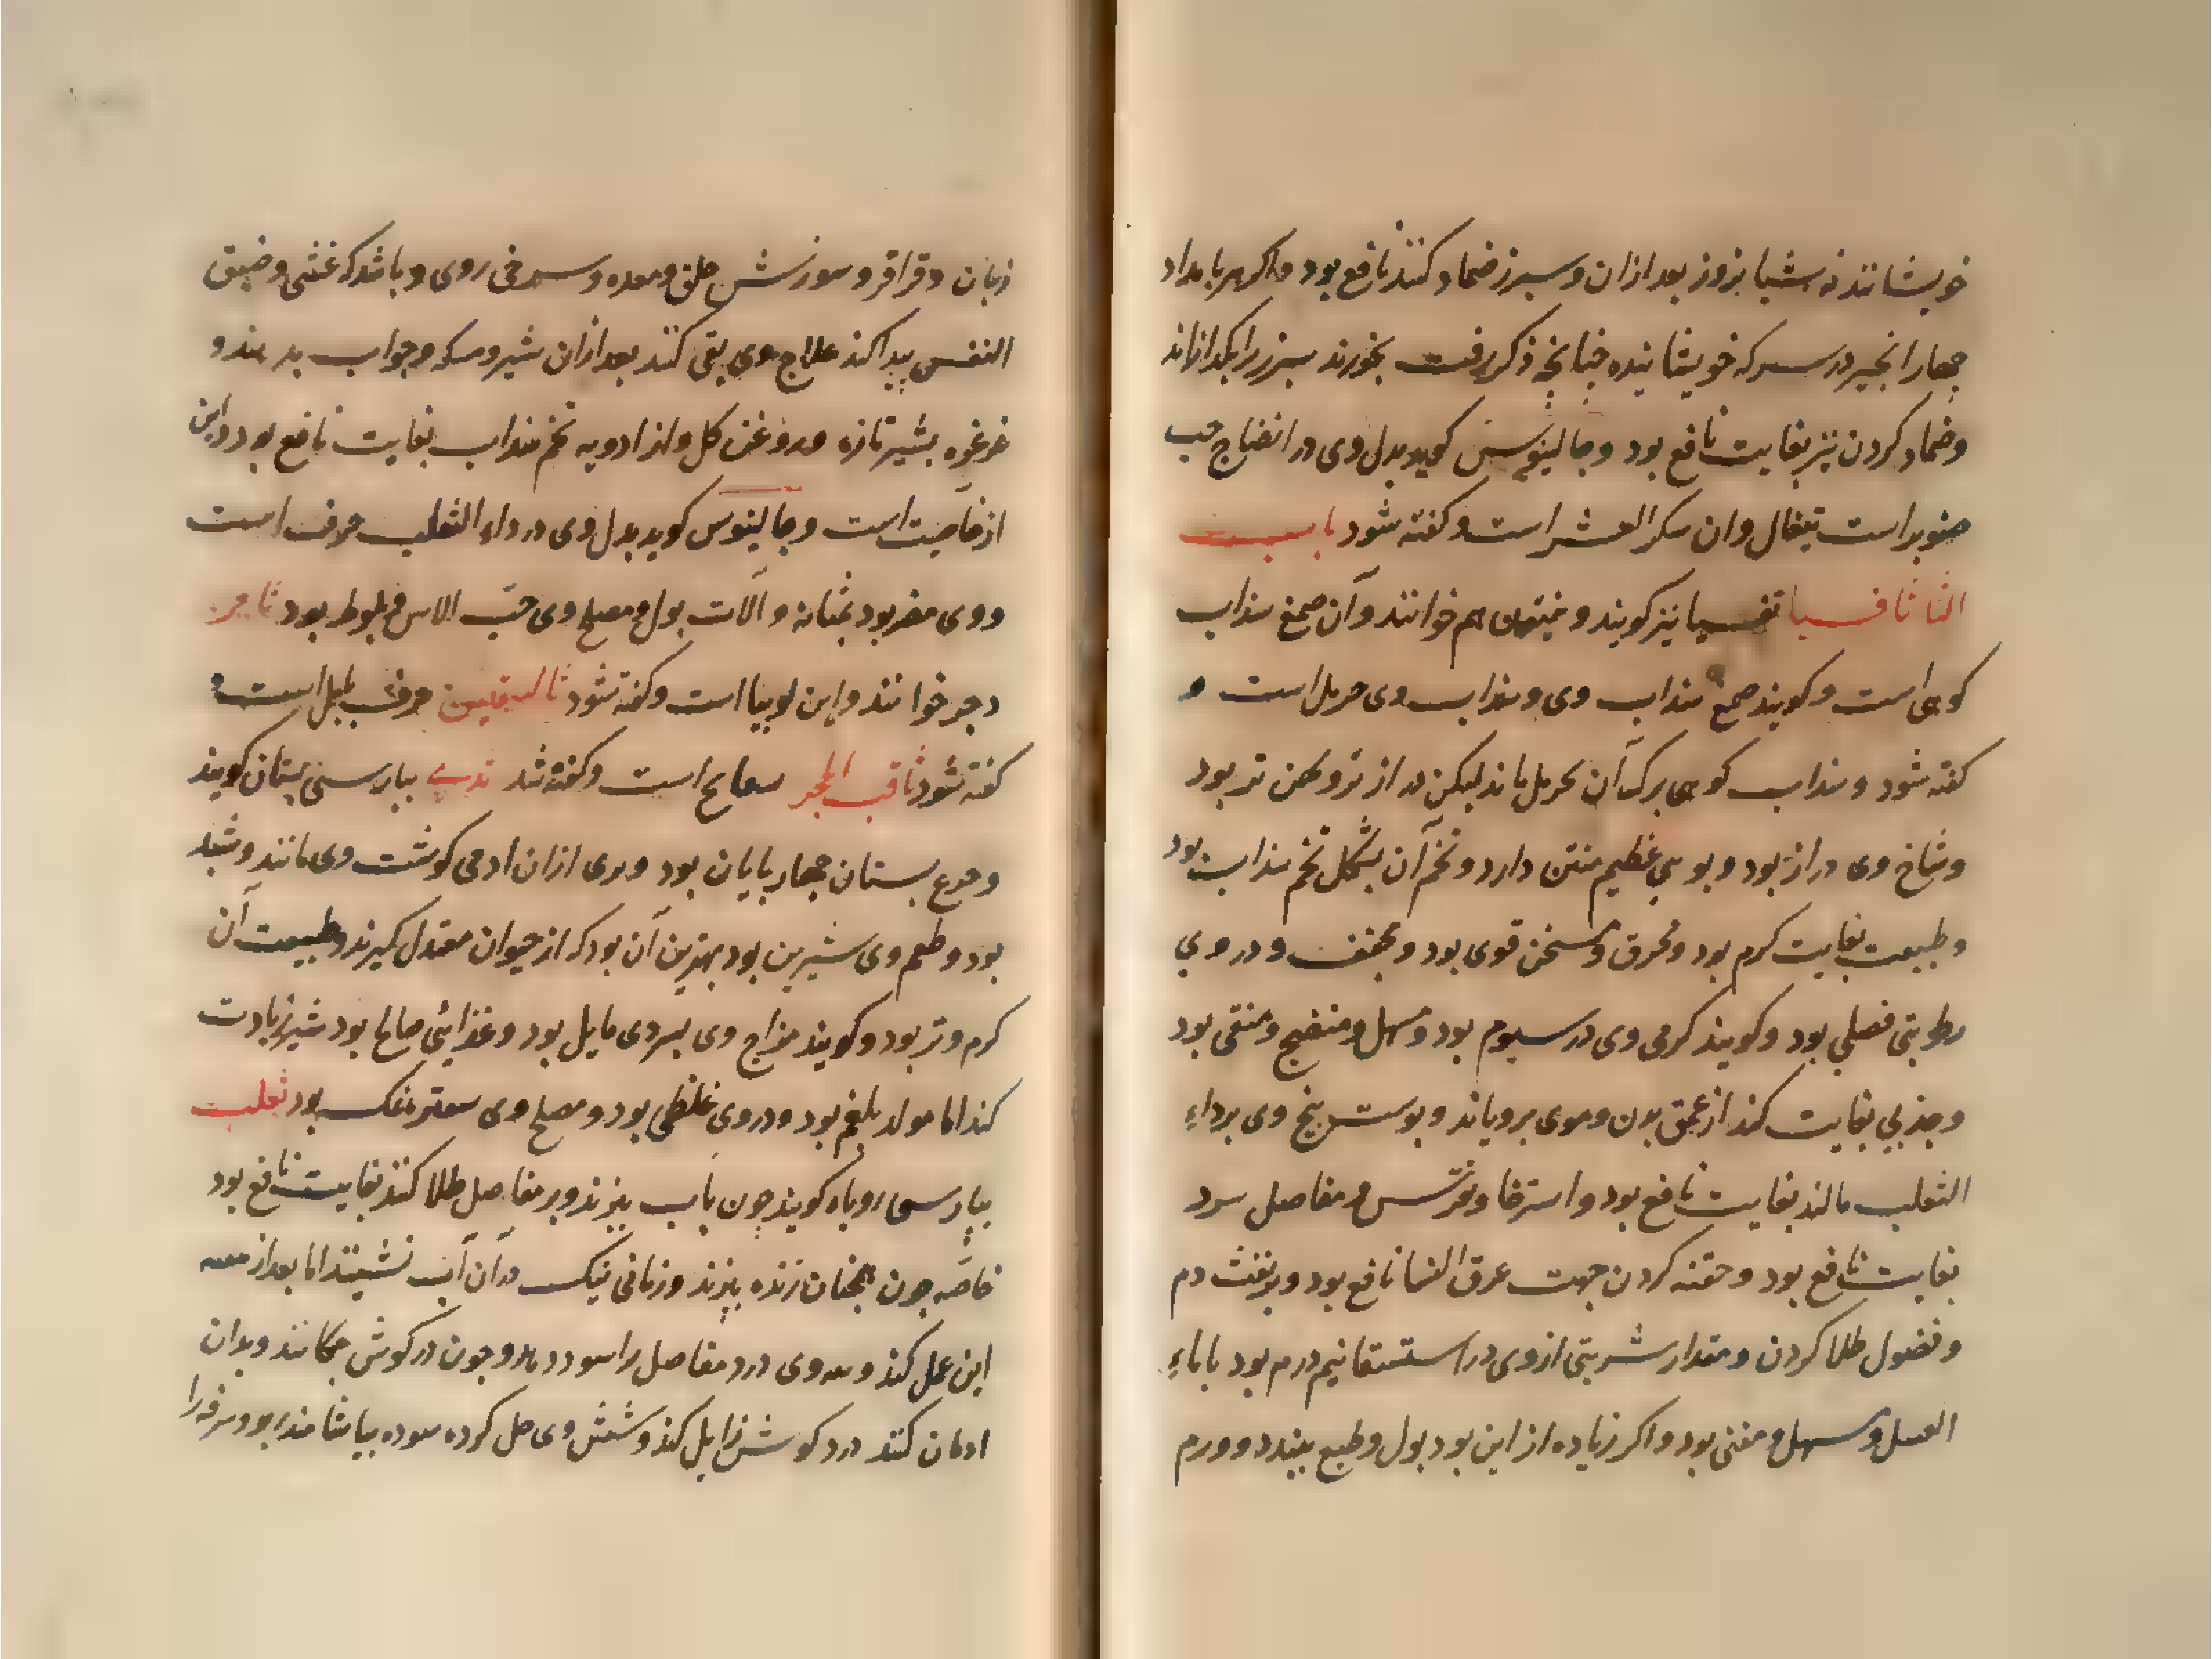 خویشانند نه شبانروز بعد ازان و سبرز ضماد کنند نافع بود و اکر هر بامداد
جهار انجیر در سرکه خویشانیده جنانجه ذکر رفت بخورند سبرز را بکدازاند
وضماد کردن نیز بغایت نافع بود و جالینوس کوید بدل وی در انضاج حب
صنوبر است تیغال وان سکر العشر است و کفته شود باب
الثا ثافسیا تفسیا نیز کویند و ینتون هم خوانند وآن صمغ سداب
کوهی است و کویند صمغ سداب وی و سداب وی حرمل است و
کفته شود و سداب کوهی برک آن بحرمل ماند لیکن دراز تر و بهن تر بود
و شاخ وی دراز بود و بویی عظیم منتن دارد و تخم آن بشکل تخم سداب بود
و طبیعت بغایت کرم بود و محرق و مسخن قوی بود و مجفف و در وی
رطوبتی فضلی بود و کویند کرمی وی در سیوم بود و مسهل و منضج و منقی بود
و جذبی بغایت کند از عمق بدن و موی برویاند و بوست بیخ وی برداء
الثعلب مالند بغایت نافع بود و استرخا و نقرس و مفاصل سرد
بغایت نافع بود و حقنه کردن جهت عرق النسا نافع بود و بر نفث دم
و فضول طلا کردن و مقدار شربتی از وی در استسقا نیم درم بود با ماء
العسل و مسهل و مقئی بود و اکر زیاده از این بود بول و طبع ببندد و ورم
زبان و قراقر و سوزش حلق و معده و سرخی روی و باشد که غشی و ضیق
النفس بیدا کند علاج وی بقی کنند بعد ازان شیر و مسکه و جواب بدهند و
غرغره بشیر تازه و روغن کل و از ادویه تخم سداب بغایت نافع بود و این
از خاصیت است و جالینوس کوید بدل وی در داء الثعلب حرف است
و وی مضر بود بمثانه و آلات بول و مصلح وی حب الاس و بلوط بود ثامر
دجر خوانند و این لوبیا است و کفته شود ثالسقیس حرف بابلی است و
کفته شود ثاقب الحجر بسفایج است و کفته شد ثدی ببارسی بستان کویند
و ضرع بستان جهاربایان بود و ثدی ازان ادمی کوشت وی مانند و شبه
بود و طعم وی شیرین بود بهترین آن بود که از حیوان معتدل کیرند و طبیعت آن
کرم و تر بود و کویند مزاج وی بسردی مایل بود و غذایئی صالح بود شیر زیادت
کند اما مولد بلغم بود و در وی غلظی بود و مصلح وی سعتر و نمک بود ثعلب
ببارسی روباه کویند جون بآب ببزند و بر مفاصل طلا کنند بغایت نافع بود
خاصه جون همجنان زنده ببزند و زمانی نیک در آن آب نشینند اما بعد از
این عمل کند و بیه وی درد مفاصل را سود دهد و جون در کوش جکانند و بدان
ادمان کنند درد کوش زایل کند و شش وی حل کرده سوده بیاشامند ربو و سرفه را